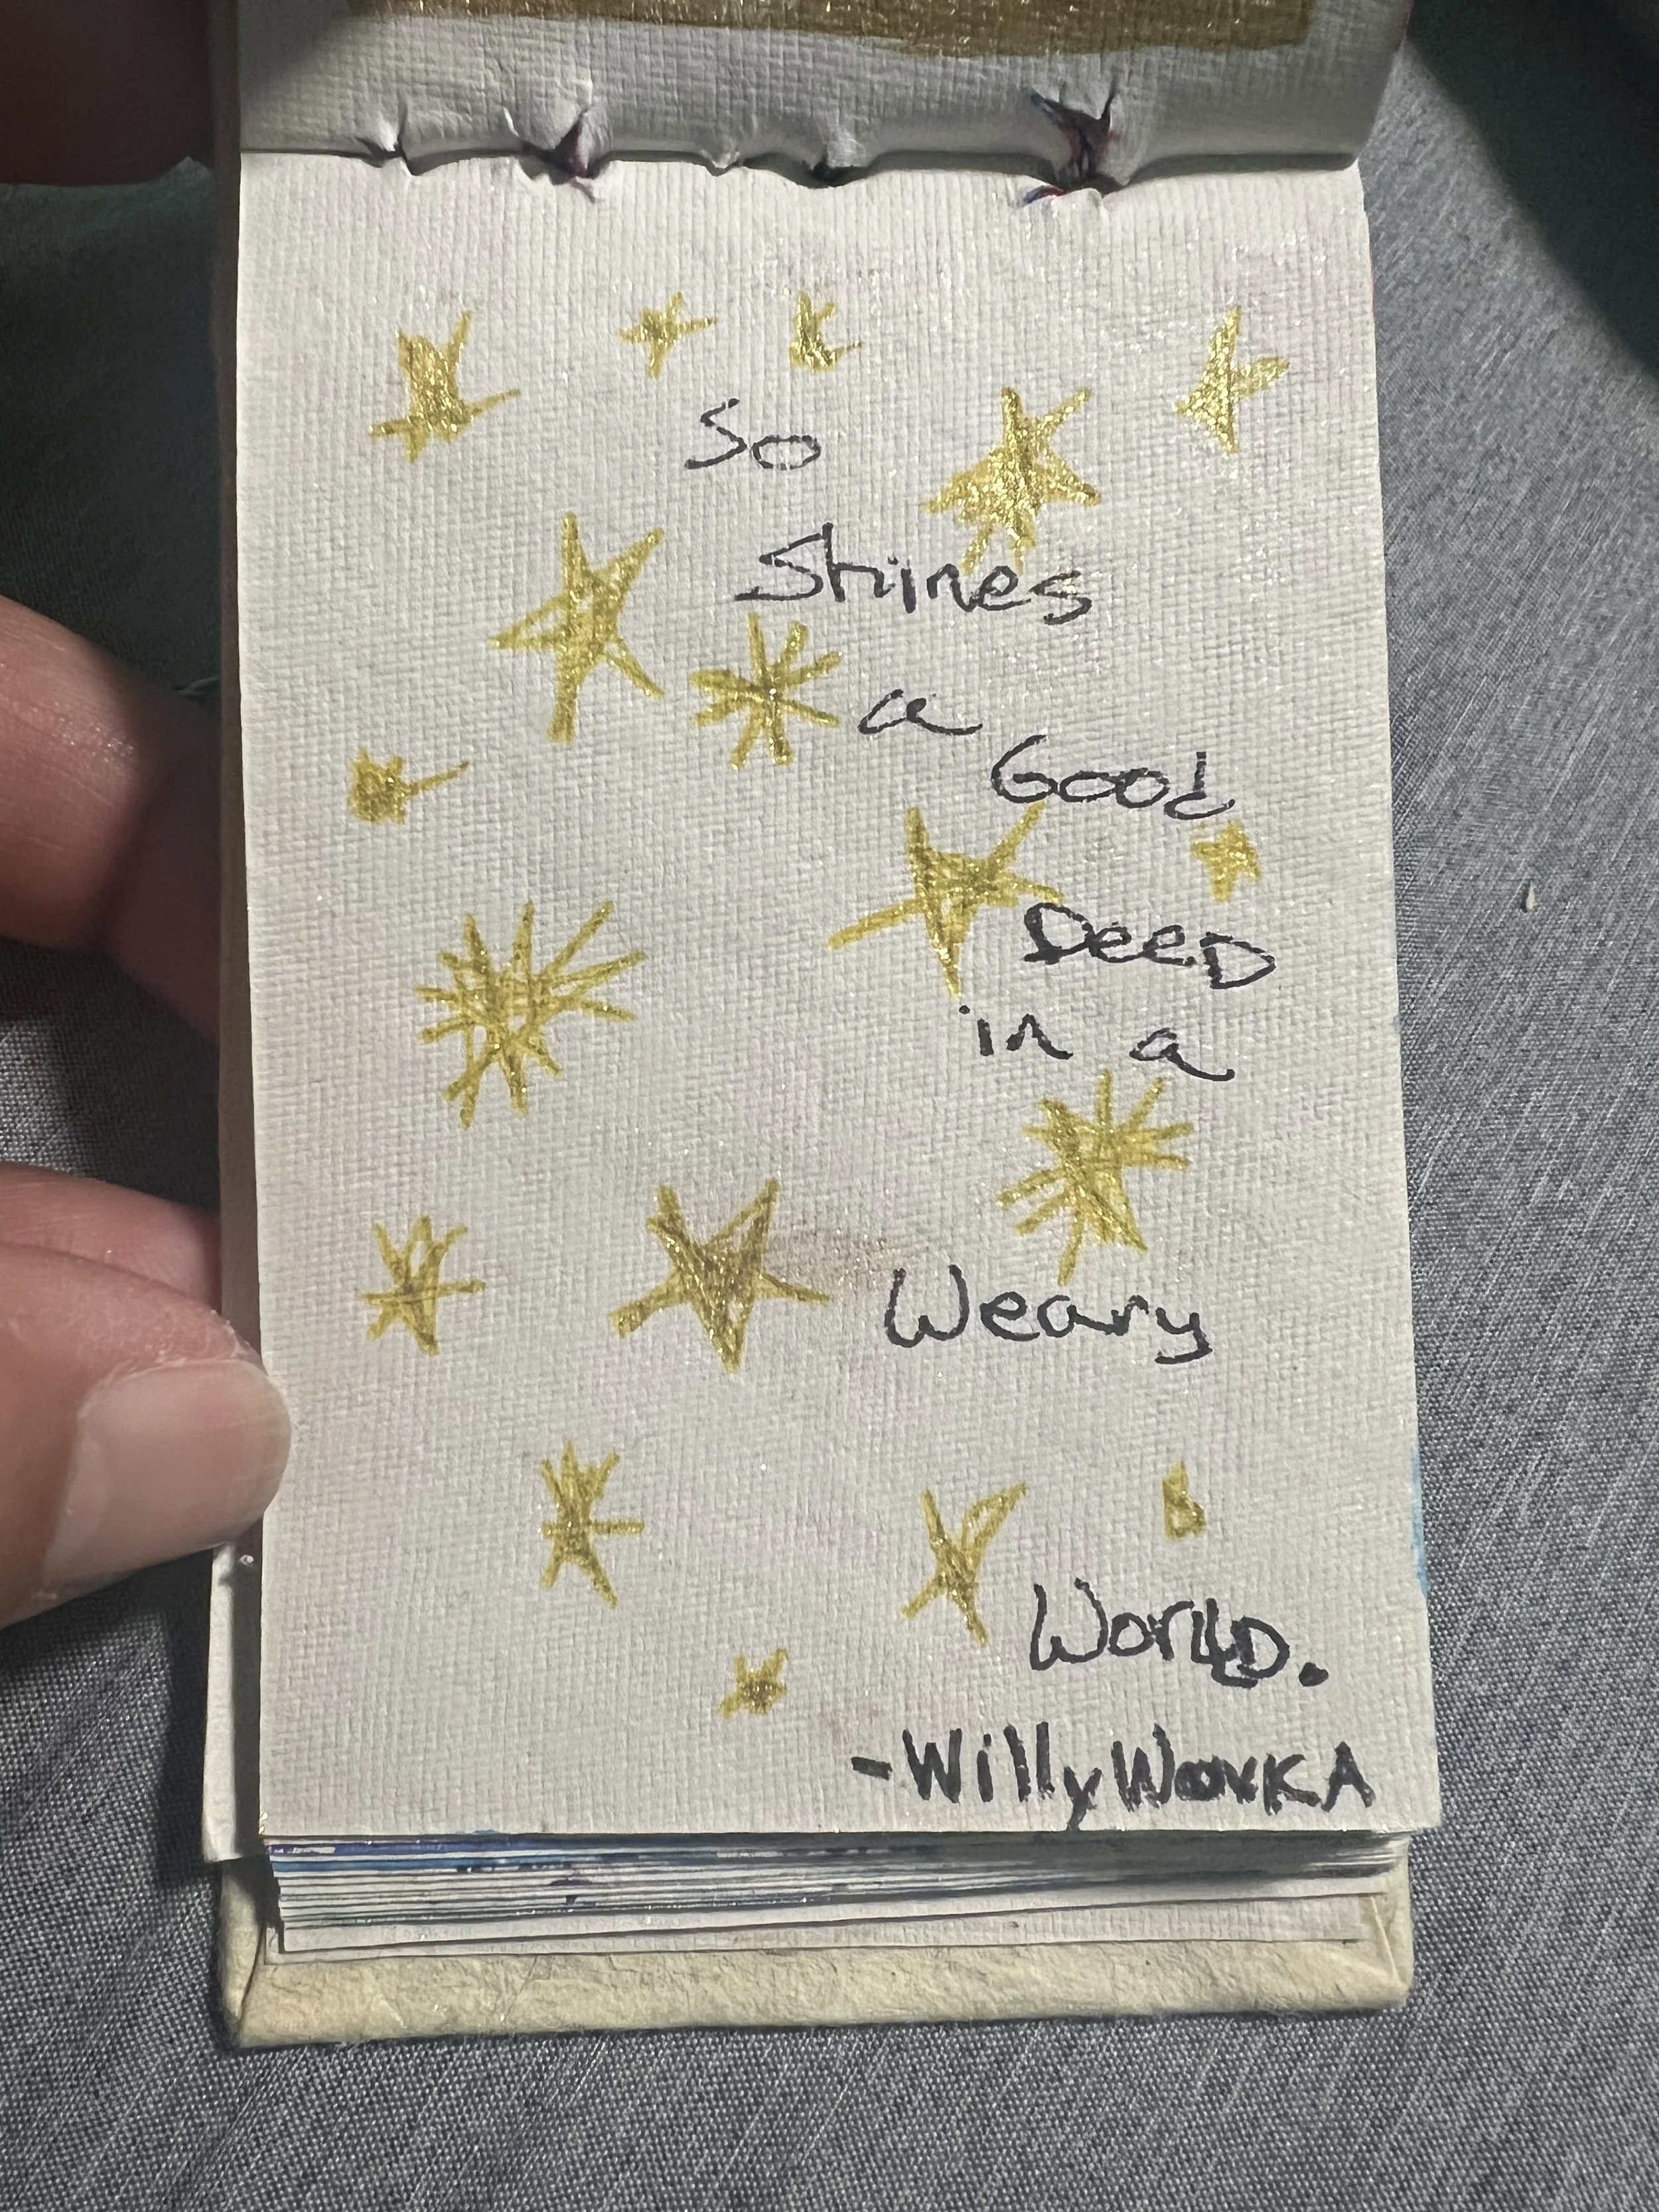 So
Shines
a
Good
DeeD
in a
Weary
WorlD.
-Willy WonKA